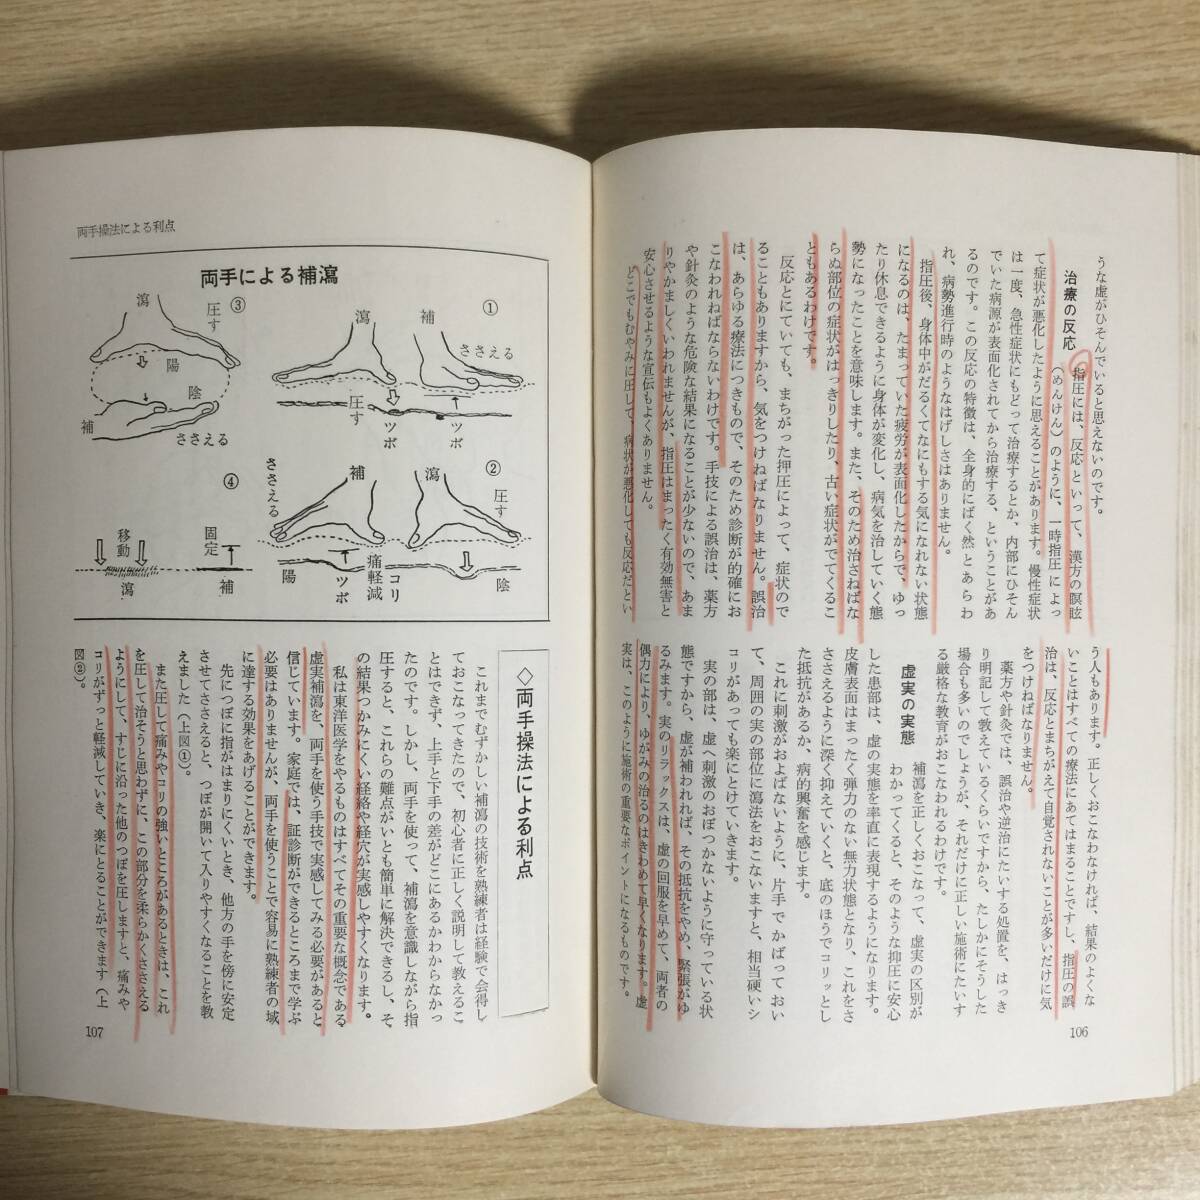 うな虚がひそんでいると思えないのです。
治療の反応
指圧には、反応といって、漢方の瞑眩
(めんけん)のように、一時指圧によっ
て症状が悪化したように思えることがあります。慢性症状
は一度、急性症状にもどって治療するとか、内部にひそん
でいた病源が表面化されてから治療する、ということがあ
るのです。この反応の特徴は、全身的にばく然とあらわ
れ、病勢進行時のようなはげしさはありません。
指圧後、身体中がだるくてなにもする気になれない状態
になるのは、たまっていた疲労が表面化したからで、ゆっ
たり休息できるように身体が変化し、病気を治していく態
勢になったことを意味します。また、そのため治さねばな
らぬ部位の症状がはっきりしたり、古い症状がでてくるこ
ともあるわけです。
反応とにていても、まちがった押圧によって、症状ので
ることもありますから、気をつけねばなりません。誤治
は、あらゆる療法につきもので、そのため診断が的確にお
こなわれねばならないわけです。手技による誤治は、薬方
や針灸のような危険な結果になることが少ないので、あま
りやかましくいわれませんが、指圧はまったく有効無害と
安心させるような宣伝もよくありません。
どこでもむやみに圧して、病状が悪化しても反応だとい
う人もあります。正しくおこなわなければ、結果のよくな
いことはすべての療法にあてはまることですし、指圧の誤
治は、反応とまちがえて自覚されないことが多いだけに気
をつけねばなりません。
薬方や針灸では、誤治や逆治にたいする処置を、はっき
り明記して教えているくらいですから、たしかにそうした
場合も多いのでしょうが、それだけに正しい施術にたいす
る厳格な教育がおこなわれるわけです。
虚実の実態
補瀉を正しくおこなって、虚実の区別が
わかってくると、そのような抑圧に安心
した患部は、虚の実態を率直に表現するようになります。
皮膚表面はまったく弾力のない無力状態となり、これをさ
ささえるように深く抑えていくと、底のほうでコリッとし
た抵抗があるか、病的興奮を感じます。
これに刺激がおよばないように、片手でかばっておい
て、周囲の実の部位に瀉法をおこないますと、相当硬いシ
コリがあっても楽にとけていきます。
実の部は、虚へ刺激のおぼつかないように守っている状
態ですから、虚が補われれば、その抵抗をやめ、緊張がゆ
るみます。実のリラックスは、虚の回服を早めて、両者の
偶力により、ゆがみの治るのはきわめて早くなります。虚
実は、このように施術の重要なポイントになるものです。
106
両手操法による利点
両手による補瀉
①
補
瀉
ささえる
圧す
ツボ
ツボ
②
瀉
補
圧す
ささえる
陰
コリ
痛軽減
ツボ
陽
③
瀉
圧す
陽
陰
補
ささえる
④
固定
補
移動
瀉
◇両手操法による利点
これまでむずかしい補瀉の技術を熟練者は経験で会得し
ておこなってきたので、初心者に正しく説明して教えるこ
とはできず、上手と下手の差がどこにあるかわからなかっ
たのです。しかし、両手を使って、補瀉を意識しながら指
圧すると、これらの難点がいとも簡単に解決できるし、そ
の結果つかみにくい経絡や経穴が実感しやすくなります。
私は東洋医学をやるものはすべてその重要な概念である
虚実補瀉を、両手を使う手技で実感してみる必要があると
信じています。家庭では、証診断ができるところまで学ぶ
必要はありませんが、両手を使うことで容易に熟練者の域
に達する効果をあげることができます。
先につぼに指がはまりにくいとき、他方の手を傍に安定
させてささえると、つぼが開いて入りやすくなることを教
えました(上図①)。
また圧して痛みやコリの強いところがあるときは、これ
を圧して治そうと思わずに、この部分を柔らかくささえる
ようにして、すじに沿った他のつぼを圧しますと、痛みや
コリがずっと軽減していき、楽にとることができます(上
図②)。
107